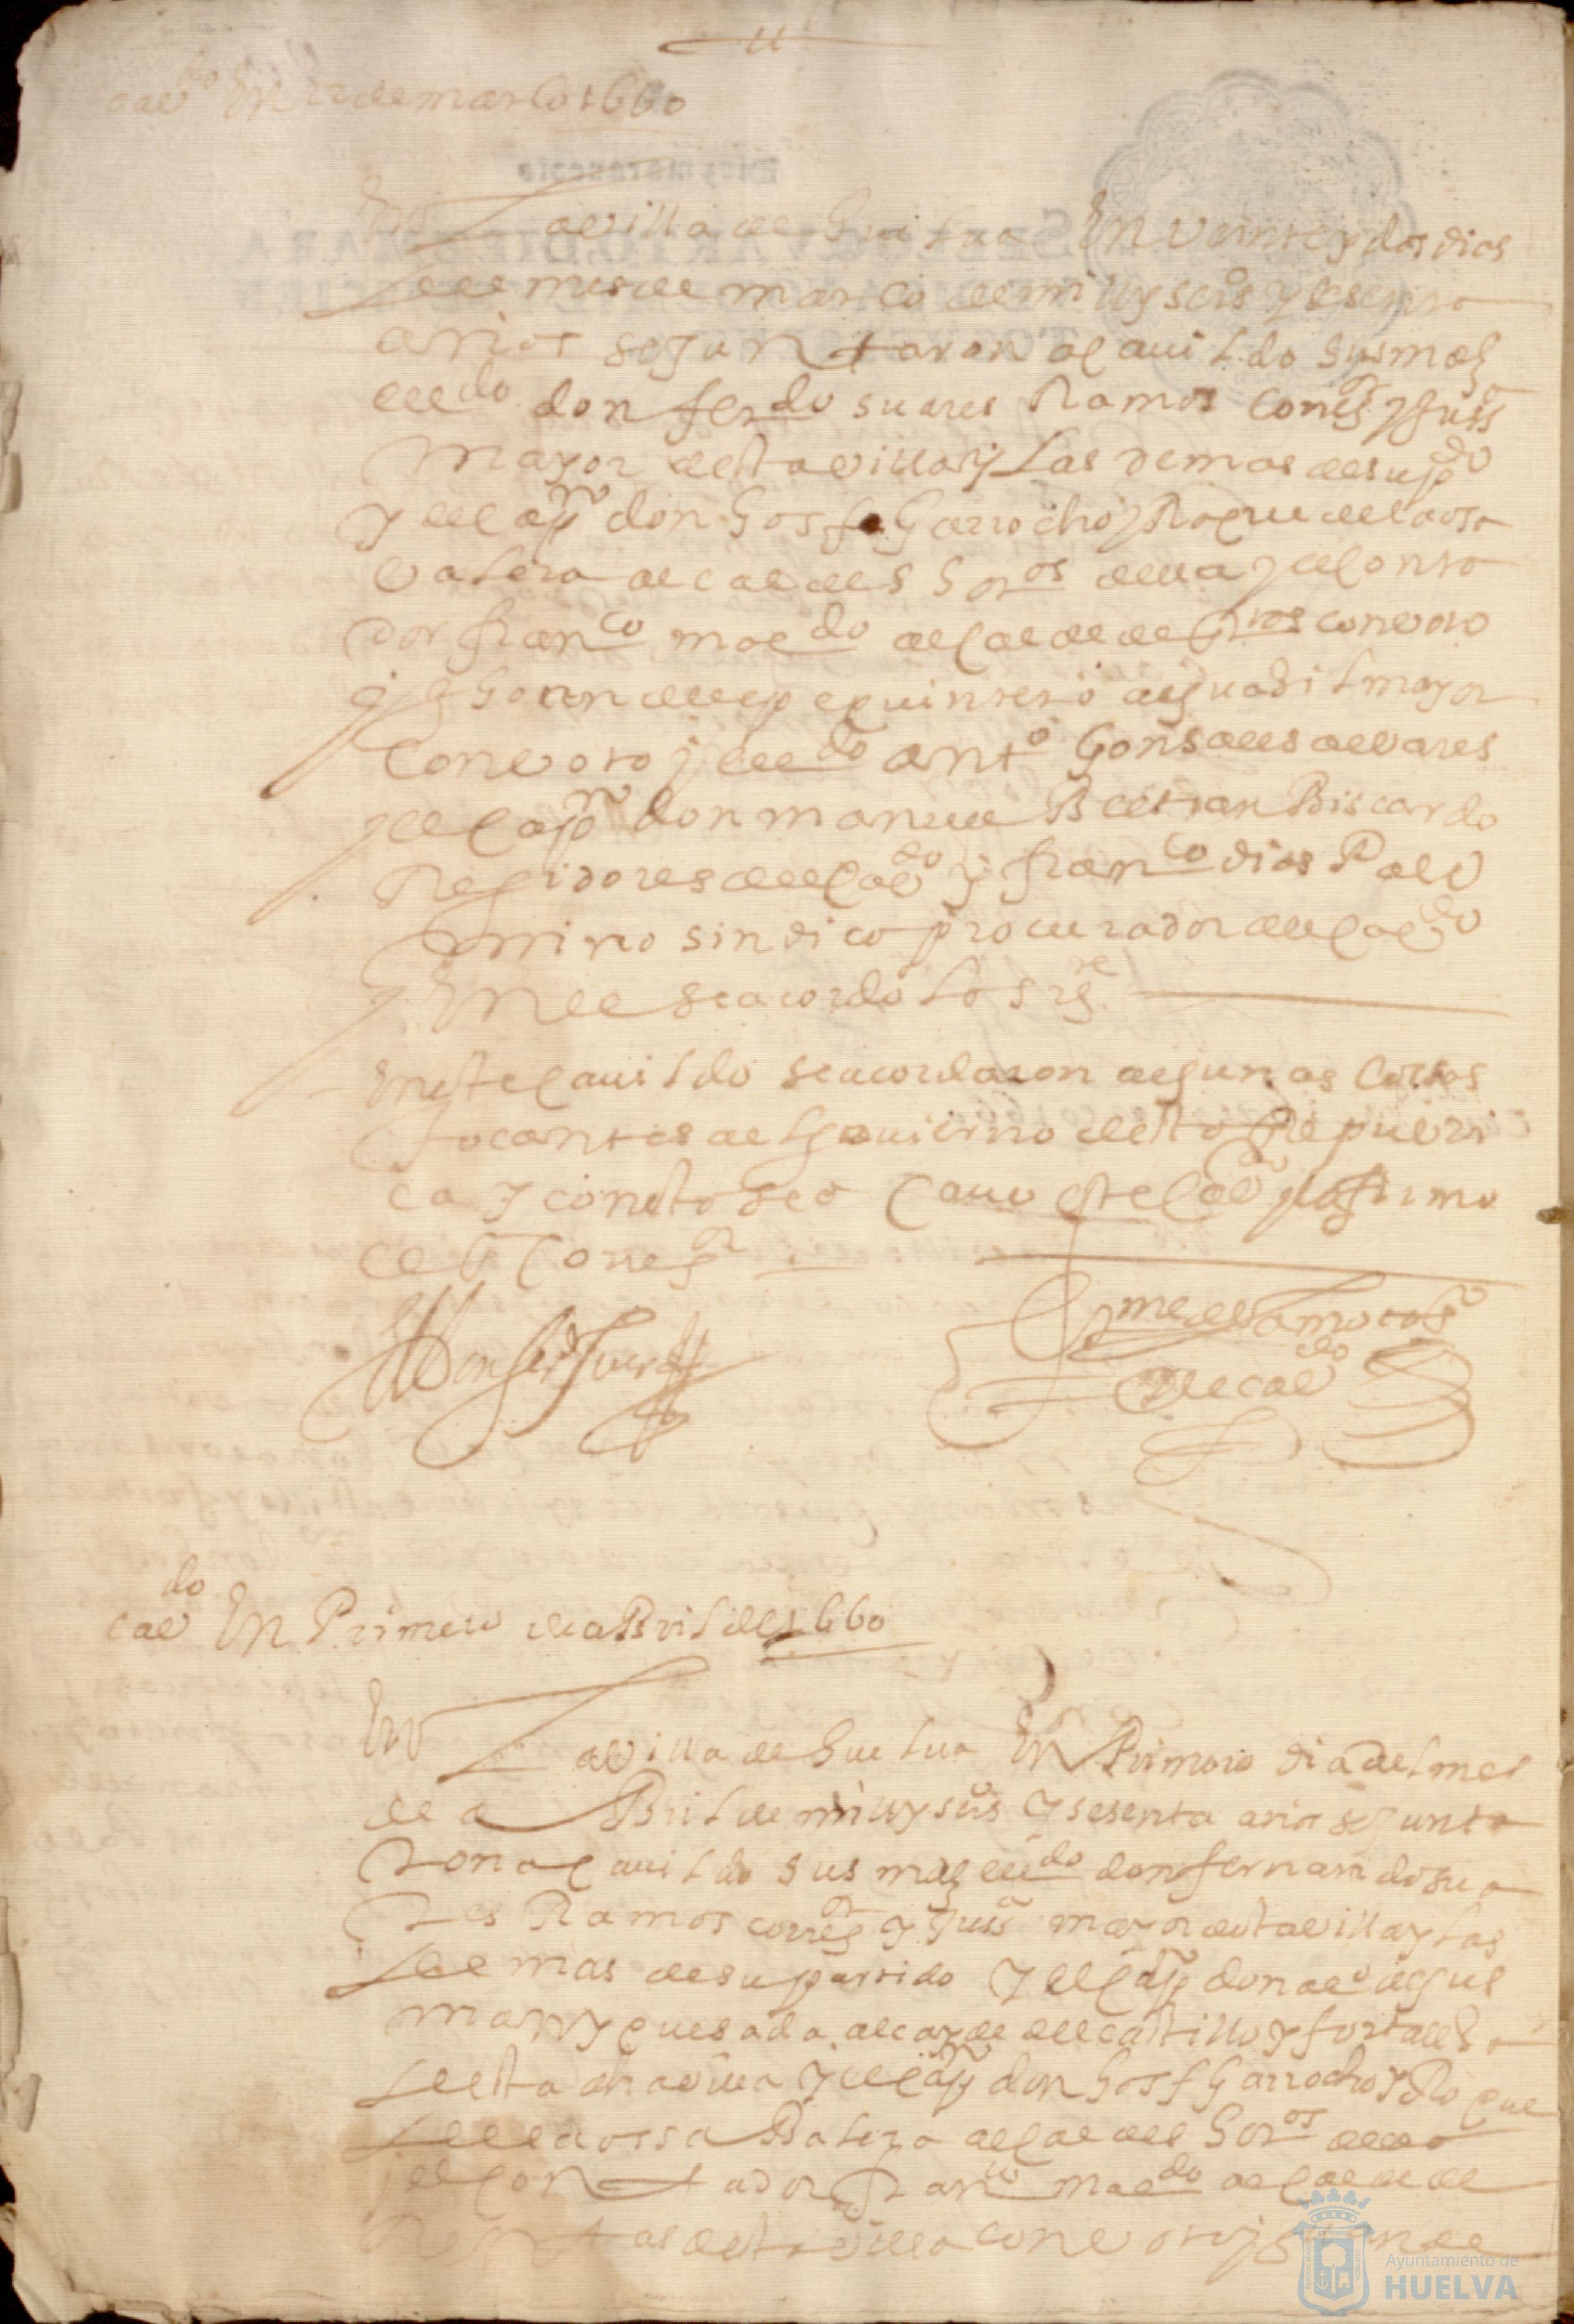 cavdo En 22 de março 1660
En La villa de Guelva En veinte y dos dias
del mes de março de mill y seis y sesenta
años se juntaron a cavildo sus mds
el ldo don ferdo suares Ramos corregor y Justa
mayor desta villa y Las demas de su pdo
y el capn don Josf Garrocho y Roque de la osa
valera alcaldes hordros della y el conta
dor franco maldo alcalde de con voto
y Juan de lepe quintero alguasil mayor
con voto y el ldo anto Gonsales alvares
y el capn don manuel Beltran Biscardo
Regidores del cavdo y franco dias Pala
mino sindico procurador del cavdo
y En el se acordó Lo sigte
En este cavildo se acordaron algunas cossas
tocantes al govierno desta Republi
ca y con esto se acavo este cavdo y lo firmo
el sr Corregor
Ldo Don ferdo Suares
del cavdo
cavdo En Primero de aBril de 1660
En La villa de Guelva En Primero dia del mes
de aBril de mill y seis y sesenta años se junta
ron a cavildo sus mds el ldo don fernando sua
res Ramos corregor y Justa mayor desta villa y Las
demas de su partido y el capn don alo de gus
man y quesada alcayde del castillo y fortalesa
desta dha villa y el capn don Josf Garrocho y Roque
de la ossa Balera alcaldes hordros della
y el contador franco maldo alcalde de
Rentas desta villa con voto y Juan de
Ayuntamiento de
HUELVA